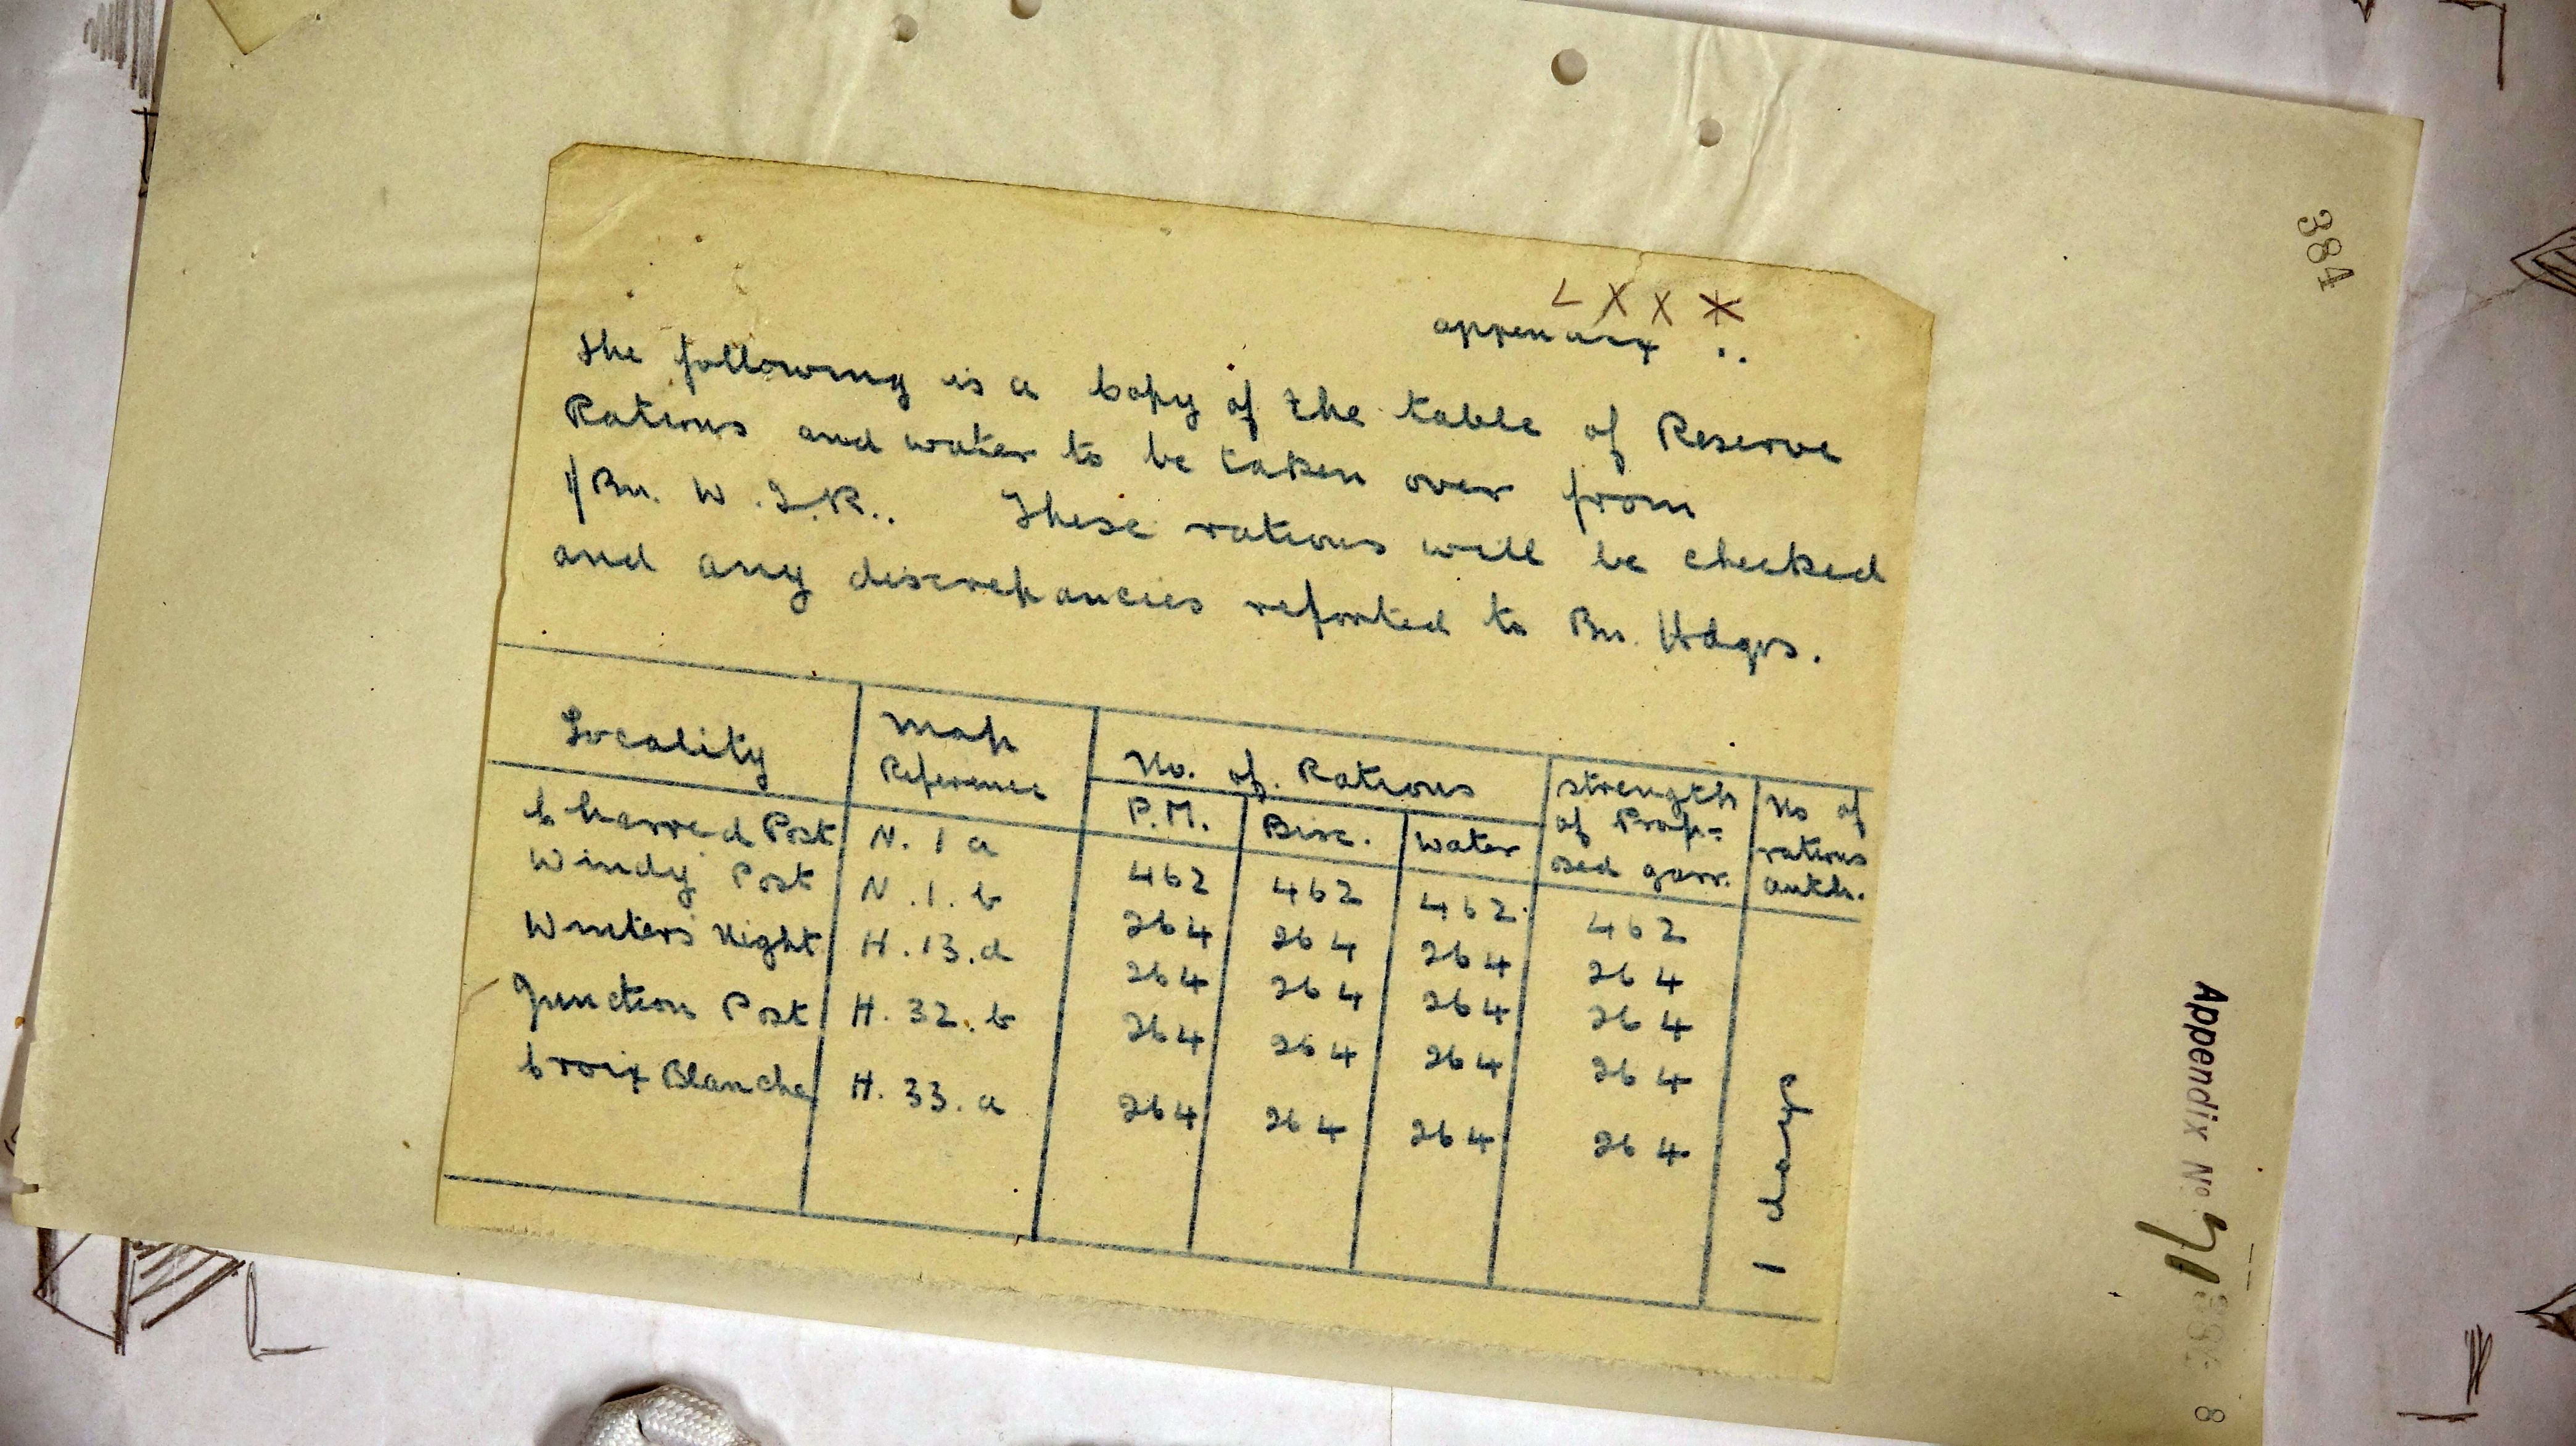 384
L X X X
appendix ..
The following is a Copy of the table of Reserve
Rations and water to be taken over from
1/Bn. W.I.R.. These rations will be checked
and any discrepancies reported to Bn. Hdqrs.
Locality | Map Reference | No. of Rations | strength of Prop=osed garr. | No of rations auth.
P.M. | Bisc. | Water
Charred Post | N. 1 a | 462 | 462 | 462 | 462
Windy Post | N. 1. b | 264 | 264 | 264 | 264
Winters Night | H. 13. d | 264 | 264 | 264 | 264
Junction Post | H. 32. b | 264 | 264 | 264 | 264
Croix Blanche | H. 33. a | 264 | 264 | 264 | 264
1 day's
Appendix No 71